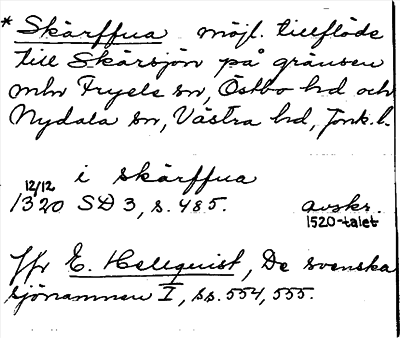 * Skärffua möjl. tillflöde
till Skärsjön på gränsen
mln Fryele sn, Östbo hd och
Nydala sn, Västra hd, Jönk. l.
i skärffua
12/12
1320 SD 3, s. 485. avskr.
1520-talet
Jfr E. Hellquist, De svenska
sjönamnen I, ss. 554, 555.